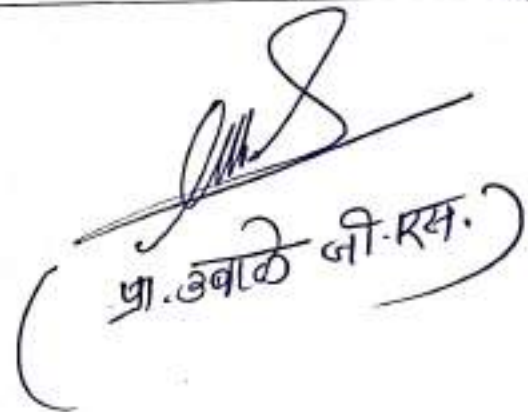 (प्रा. उबाळे जी. एस.)